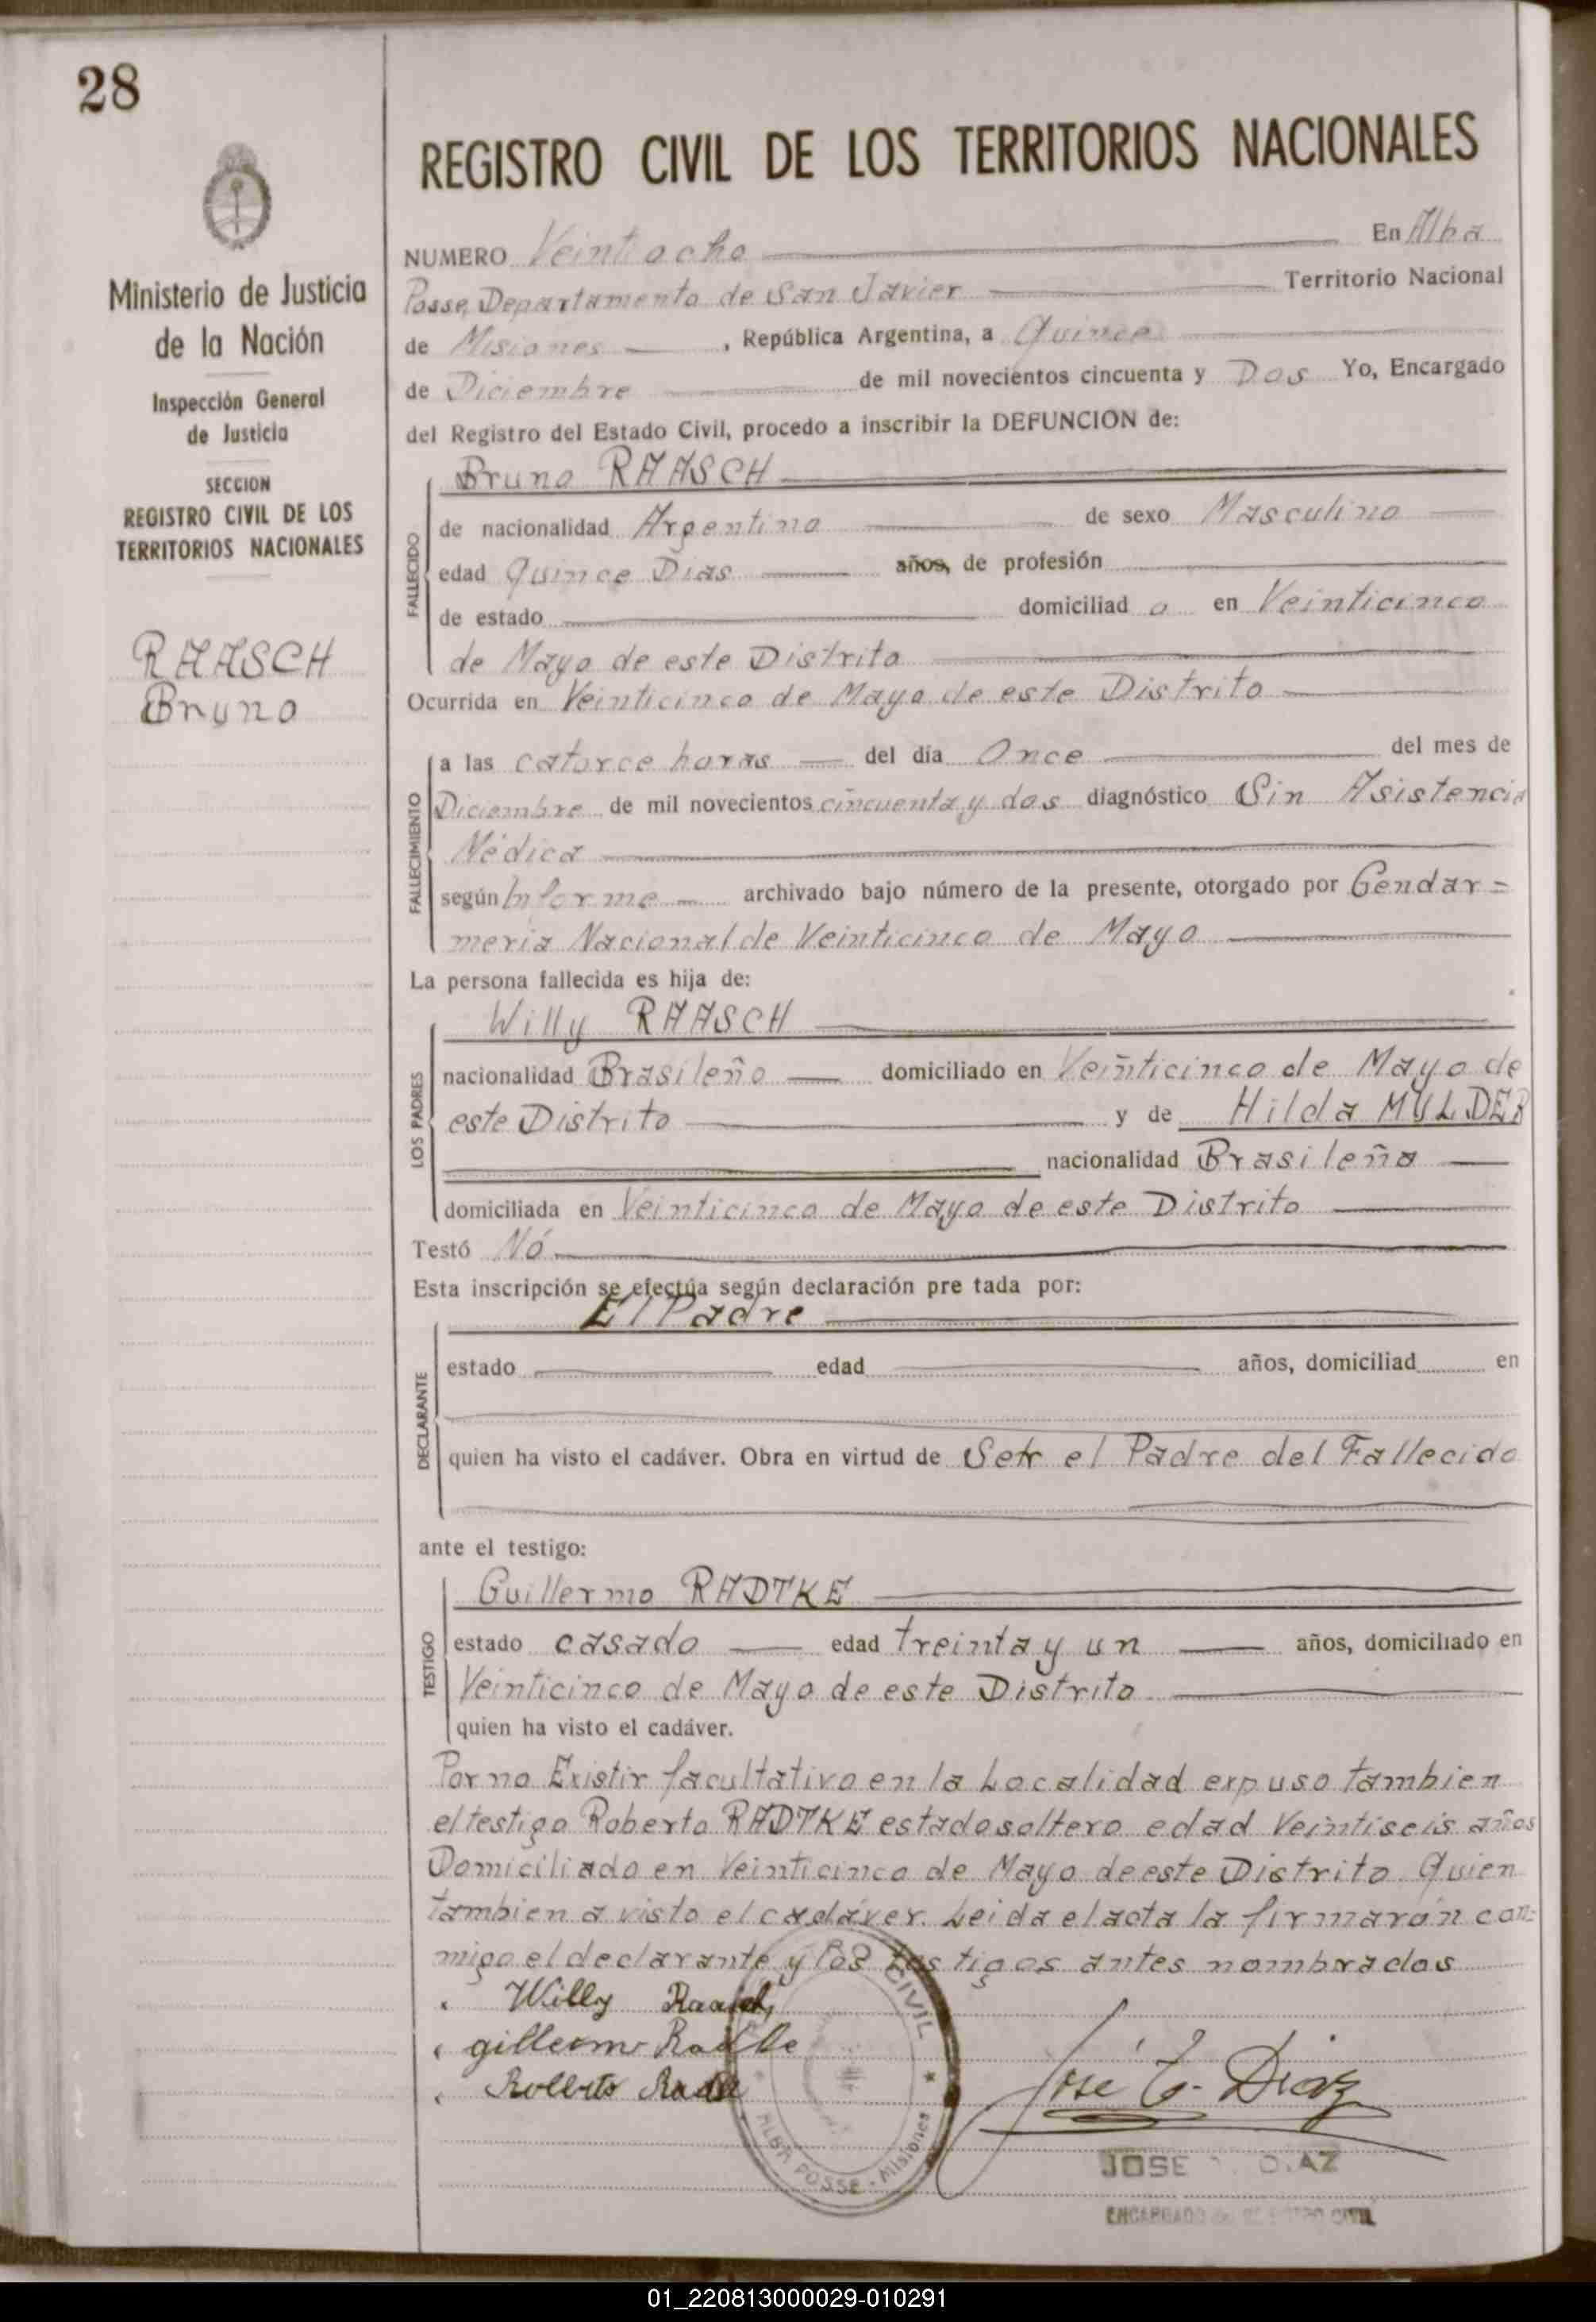 28
Ministerio de Justicia
de la Nación
Inspección General
de Justicia
SECCION
REGISTRO CIVIL DE LOS
TERRITORIOS NACIONALES
RAASCH
Bruno
REGISTRO CIVIL DE LOS TERRITORIOS NACIONALES
NUMERO Veintiocho En Alba
Posse, Departamento de San Javier Territorio Nacional
de Misiones , República Argentina, a Quince
de Diciembre de mil novecientos cincuenta y Dos Yo, Encargado
del Registro del Estado Civil, procedo a inscribir la DEFUNCION de:
Bruno RAASCH
FALLECIDO
de nacionalidad Argentino de sexo Masculino
edad Quince Dias años, de profesión
de estado domiciliad o en Veinticinco
de Mayo de este Distrito
Ocurrida en Veinticinco de Mayo de este Distrito
FALLECIMIENTO
a las catorce horas del día Once del mes de
Diciembre de mil novecientos cincuenta y dos diagnóstico Sin Asistencia
Médica
según Informe archivado bajo número de la presente, otorgado por Gendar=
meria Nacional de Veinticinco de Mayo
La persona fallecida es hija de:
LOS PADRES
Willy RAASCH
nacionalidad Brasileño domiciliado en Veinticinco de Mayo de
este Distrito y de Hilda MULDER
nacionalidad Brasileña
domiciliada en Veinticinco de Mayo de este Distrito
Testó Nó
Esta inscripción se efectúa según declaración pre tada por:
El Padre
DECLARANTE
estado edad años, domiciliad en
quien ha visto el cadáver. Obra en virtud de Setr el Padre del Fallecido
ante el testigo:
TESTIGO
Guillermo RADTKE
estado casado edad treinta y un años, domiciliado en
Veinticinco de Mayo de este Distrito
quien ha visto el cadáver.
Por no Existir facultativo en la Localidad expuso tambien
el testigo Roberto RADTKE estado soltero edad Veintiseis años
Domiciliado en Veinticinco de Mayo de este Distrito Quien
tambien a visto el cadáver. Leida el acta la firmarón con=
migo el declarante y los testigos antes nombrados
Willy Raasch
gillermo Radtke
Rolberto Radtke
CIVIL
ALBA POSSE - Misiones
José T. Diaz
JOSE T. DIAZ
ENCARGADO REGISTRO CIVIL
01_220813000029-010291